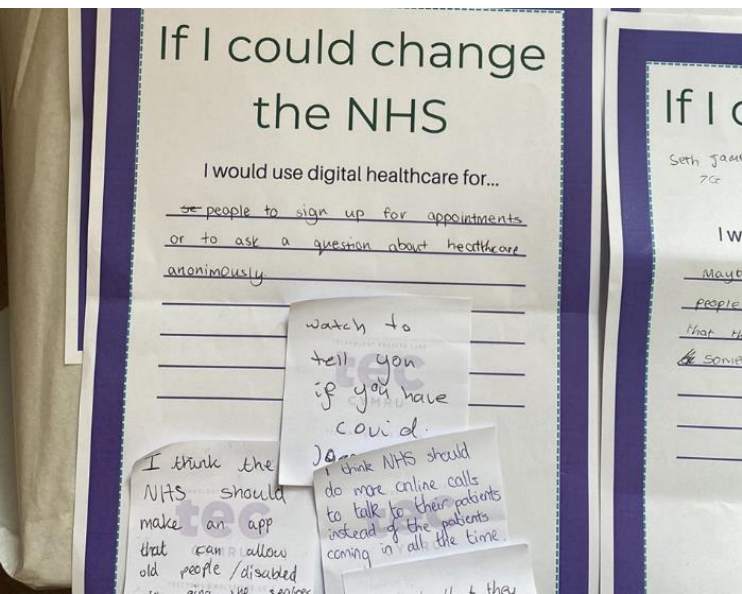 If I could change
the NHS
I would use digital healthcare for...
people to sign up for appointments
or to ask a question about healthcare
anonimously.
watch to
tell you
if you have
covid.
I think the
NHS should
make an app
that can allow
old people /disabled
I think NHS should
do more online calls
to talk to their patients
instead of the patients
coming in all the time.
they
tec
CYMRU
tec
tec
If I
Seth
7G
I w
people
that